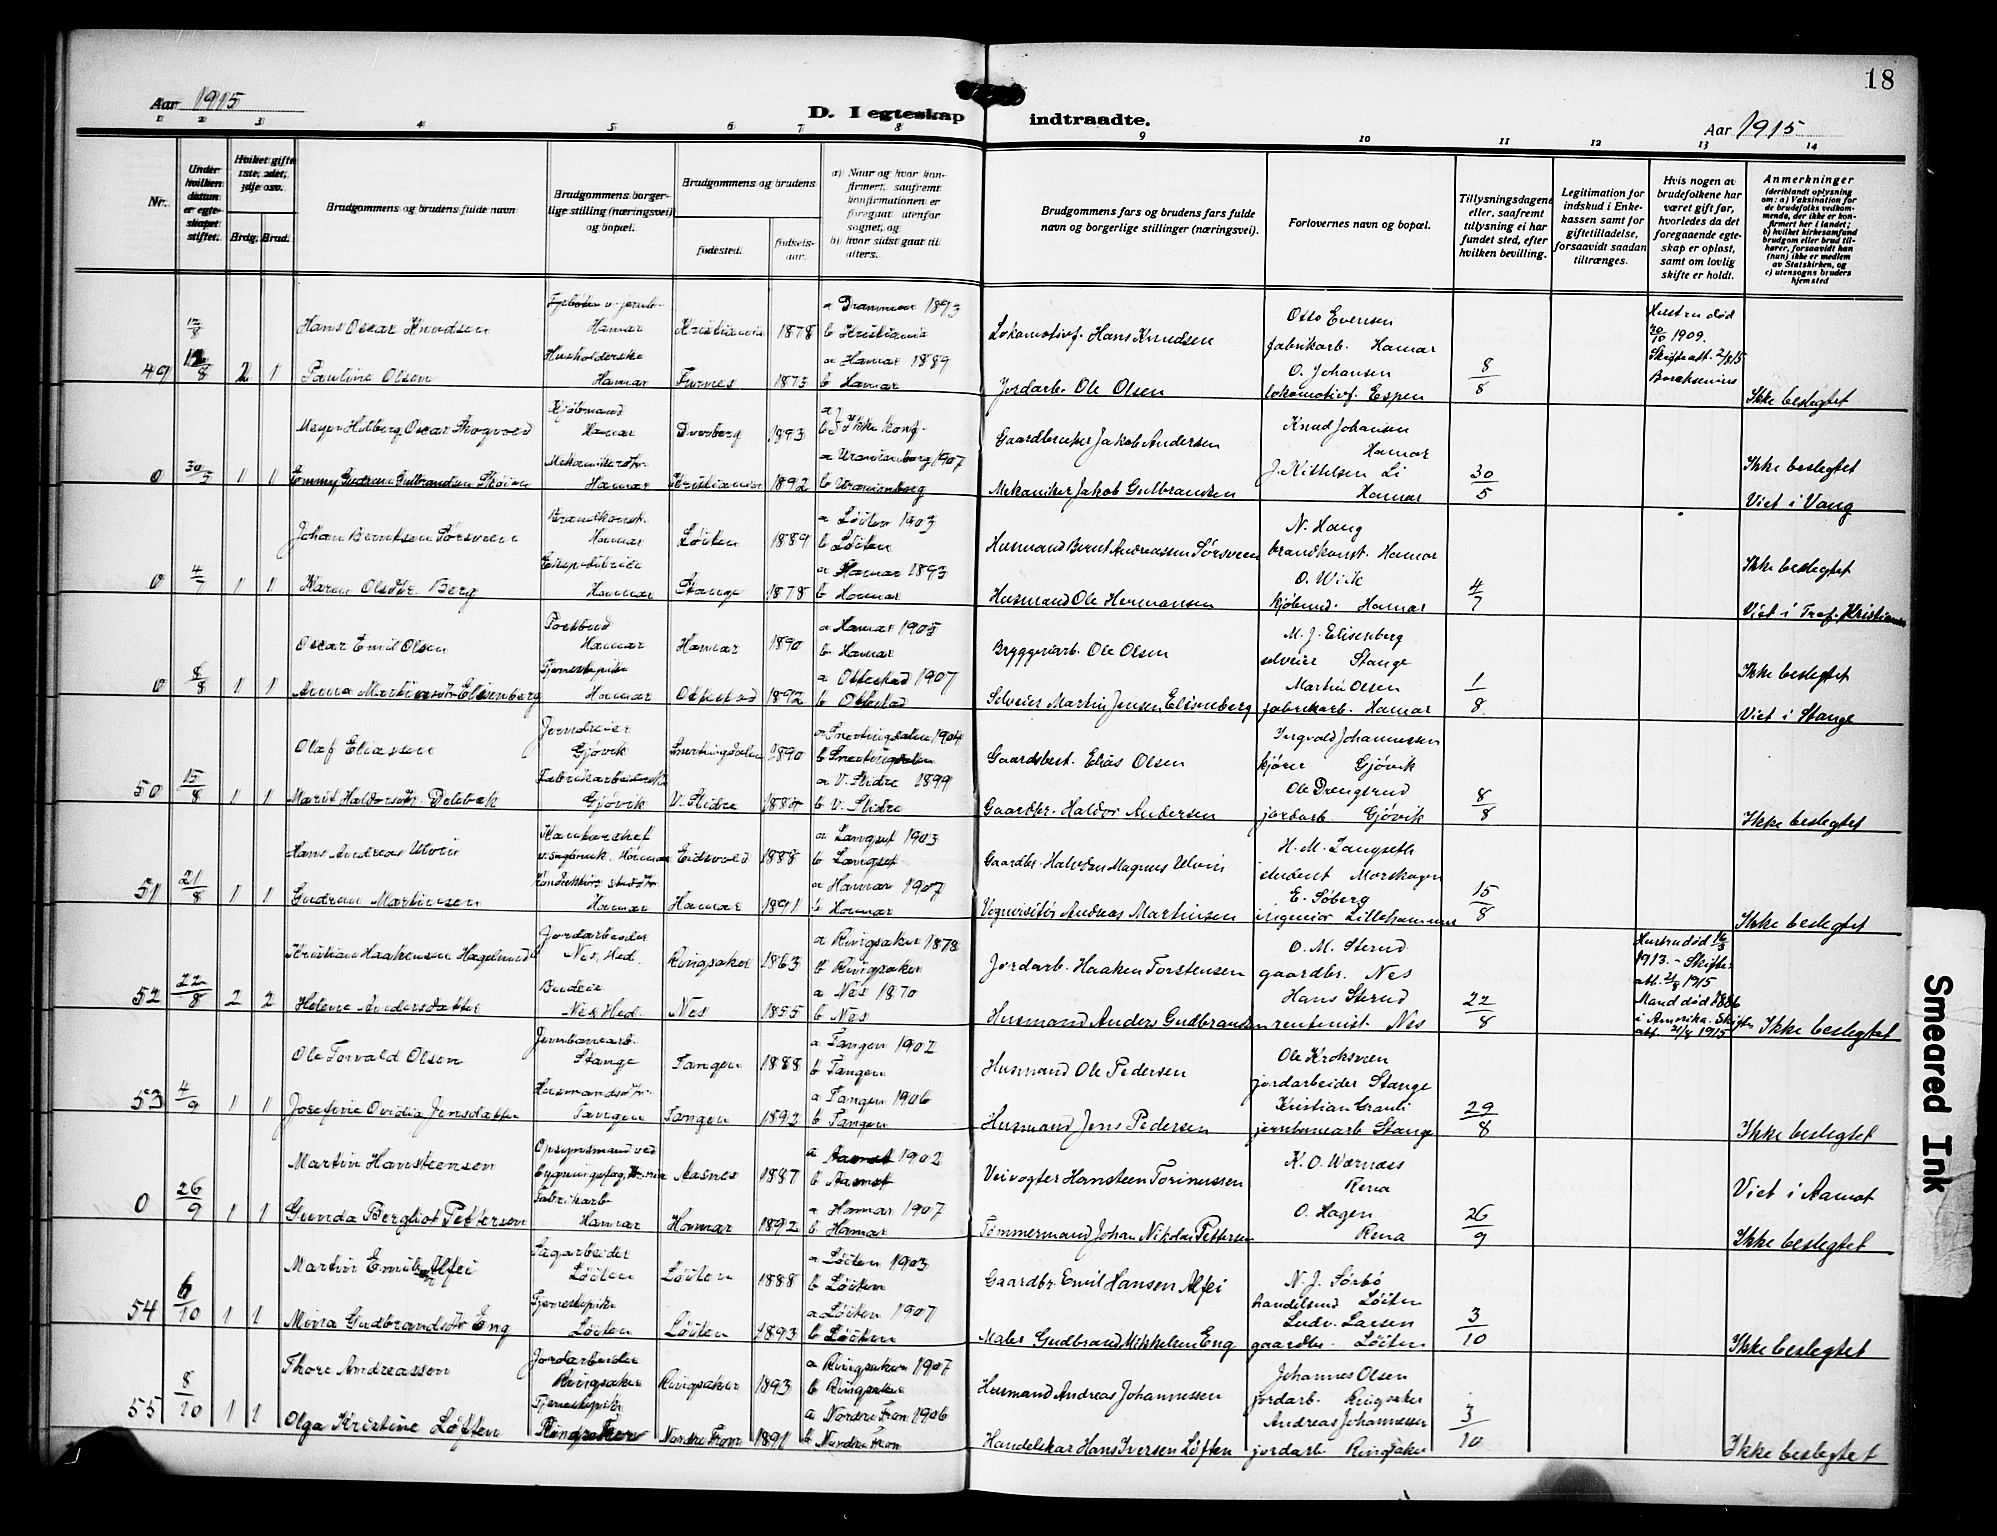 18
Aar 1915
D. I egteskap indtraadte.
Aar 1915
1 2 3 4 5 6 7 8 9 10 11 12 13 14
Nr.
Under hvilken datum er egteskapet stiftet.
Hvilket gifte 1ste, 2det, 3dje osv.
Brdg. Brud.
Brudgommens og brudens fulde navn
Brudgommens borgerlige stilling (næringsvei) og bopæl.
Brudgommens og brudens
fødested.
fødselsaar.
a) Naar og hvor konfirmert, saafremt konfirmationen er foregaat utenfor sognet, og
b) hvor sidst gaat til alters.
Brudgommens fars og brudens fars fulde navn og borgerlige stillinger (næringsvei).
Forlovernes navn og bopæl.
Tillysningsdagene eller, saafremt tillysning ei har fundet sted, efter hvilken bevilling.
Legitimation for indskud i Enkekassen samt for giftetilladelse, forsaavidt saadan tiltrænges.
Hvis nogen av brudefolkene har været gift før, hvorledes da det foregaaende egteskap er opløst, samt om lovlig skifte er holdt.
Anmerkninger (deriblandt oplysning om: a) Vaksination for de brudefolks vedkommende, der ikke er konfirmert her i landet; b) hvilket kirkesamfund brudgom eller brud tilhører, forsaavidt han (hun) ikke er medlem av Statskirken, og c) utensogns bruders hjemsted
49 12/8 2 1
Hans Oscar Knudsen Hamar Kristiania 1878 a Drammen 1893 b Kristiania Lokomotivf. Hans Knudsen Otto Evensen fabrikarb. Hamar 8/8 Hustru død 30/10 1909. Skifteatt. 2/8 15
Pauline Olsen Husholderske Hamar Furnes 1875 a Hamar 1889 b Hamar Jordarb. Ole Olsen O. Johansen lokomotivf. Espen Ikke beslegtet
0 30/5 1 1
Meyer Hilberg Oscar Skogvold Kjøbmand Hamar Dverberg 1893 a b Ikke konf. Gaardbruker Jakob Andersen Knud Johansen Hamar 30/5 Ikke beslegtet
Gudrun Gulbrandsen Hamar Kristiania 1892 a Uranienborg 1907 b Uranienborg Mekaniker Jakob Gulbrandsen J. Kittelsen Li Hamar Viet i Vang
0 4/7 1 1
Johan Berntsen Sørsveen Brandkonst. Hamar Løiten 1889 a Løiten 1903 b Løiten Husmand Bernt Andreassen Sørsveen N. Haug brandkonst. Hamar 4/7 Ikke beslegtet
Karen Olsdtr. Berg Hamar Stange 1878 a Hamar 1893 b Hamar Husmand Ole Hermansen O. Wick kjøbmd. Hamar Viet i Tref. Kristiania
0 8/8 1 1
Oscar Emil Olsen Postbud Hamar Hamar 1890 a Hamar 1905 b Hamar Bryggeriarb. Ole Olsen M. J. Elisenberg selveier Stange 1/8 Ikke beslegtet
Anna Martinsdtr Elisenberg Tjenestepike Hamar Ottestad 1892 a Ottestad 1907 b Ottestad Selveier Martin Jensen Elisenberg Martin Olsen fabrikarb. Hamar Viet i Stange
50 15/8 1 1
Olaf Eliassen Jerndreier Gjøvik Snertingdalen 1890 a Snertingdalen 1904 b Snertingdalen Gaardbest. Elias Olsen Ingvald Johannessen kjører Gjøvik 8/8
Marit Haldorsdtr. Delebæk Fabrikarbeiderske Gjøvik V. Slidre a V. Slidre 1899 b V. Slidre Gaardbr. Haldor Andersen Ole Drengsrud jordarb. Gjøvik Ikke beslegtet
51 21/8 1 1
Hans Andreas Ulvin Hamar Eidsvold 1888 a Langset 1903 b Langset Gaardbr. Halvdan Magnus Ulvin H. M. Langseth student Morskogen 15/8
Gudrun Martinsen Hamar Hamar 1891 a Hamar 1907 b Hamar Vognvisitør Andreas Martinsen E. Søberg ingeniør Lillehammer Ikke beslegtet
52 22/8 2 2
Kristian Haakensen Hagelund Jordarbeider Nes, Hed. Ringsaker 1863 a Ringsaker 1878 b Ringsaker Jordarb. Haaken Torstensen O. M. Sterud gaardbr. Nes 22/8 Hustru død 1913. – Skifteatt. 21/8 1915
Helene Andersdatter Budeie Nes Hed. Nes 1855 a Nes 1870 b Nes Husmand Anders Gudbrandsen Hans Sterud rentenist. Nes Mand død 1886 i Amerika. Skifteatt. 21/8 1915 Ikke beslegtet
53 4/9 1 1
Ole Torvald Olsen Jernbanearb. Stange Tangen 1888 a Tangen 1902 b Tangen Husmand Ole Pedersen Ole Kroksveen jordarbeider Stange 29/8
Josefine Ovidia Jensdatter Husmandsdtr. Tangen Tangen 1892 a Tangen 1906 b Tangen Husmand Jens Pedersen Kristian Granli jernbanearb Stange Ikke beslegtet
0 26/9 1 1
Martin Hansteensen Opsynsmand ved Aasnes 1887 a Aamot 1902 b Aamot Veivogter Hansteen Torinussen K. O. Wærnæss Rena 26/9 Viet i Aamot
Gunda Bergliot Pettersen Fabrikarb. Hamar Hamar 1892 a Hamar 1907 b Hamar Tømmermand Johan Nikolai Pettersen O. Hagen Rena Ikke beslegtet
54 6/10 1 1
Martin Emilsen Alfei Sagarbeider Løiten Løiten 1888 a Løiten 1903 b Løiten Gaardbr. Emil Hansen Alfei N. J. Sørbø handelsmd Løiten 3/10
Mina Gudbrandsdtr Eng Tjenestepike Løiten Løiten 1893 a Løiten 1907 b Løiten Maler Gudbrand Mikkelsen Eng Ludv. Larsen gaardbr. Løiten Ikke beslegtet
55 8/10 1 1
Thore Andreassen Jordarbeider Ringsaker Ringsaker 1893 a Ringsaker 1907 b Ringsaker Husmand Andreas Johannessen Johannes Olsen jordarb. Ringsaker 3/10
Olga Kristine Løften Tjenestepike Ringsaker Nordre Fron 1891 a Nordre Fron 1906 b Nordre Fron Handelskar Hans Iversen Løften Andreas Johannessen jordarb Ringsaker Ikke beslegtet
Smeared Ink